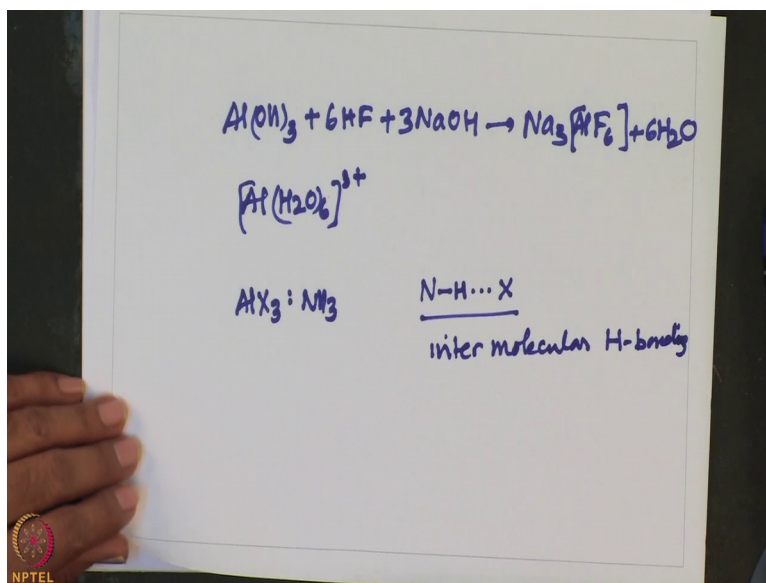 Al(OH)3 + 6HF + 3NaOH → Na3[AlF6] + 6H2O
[Al(H2O)6]3+
AlX3 : NH3 N–H···X
inter molecular H-bonding
NPTEL